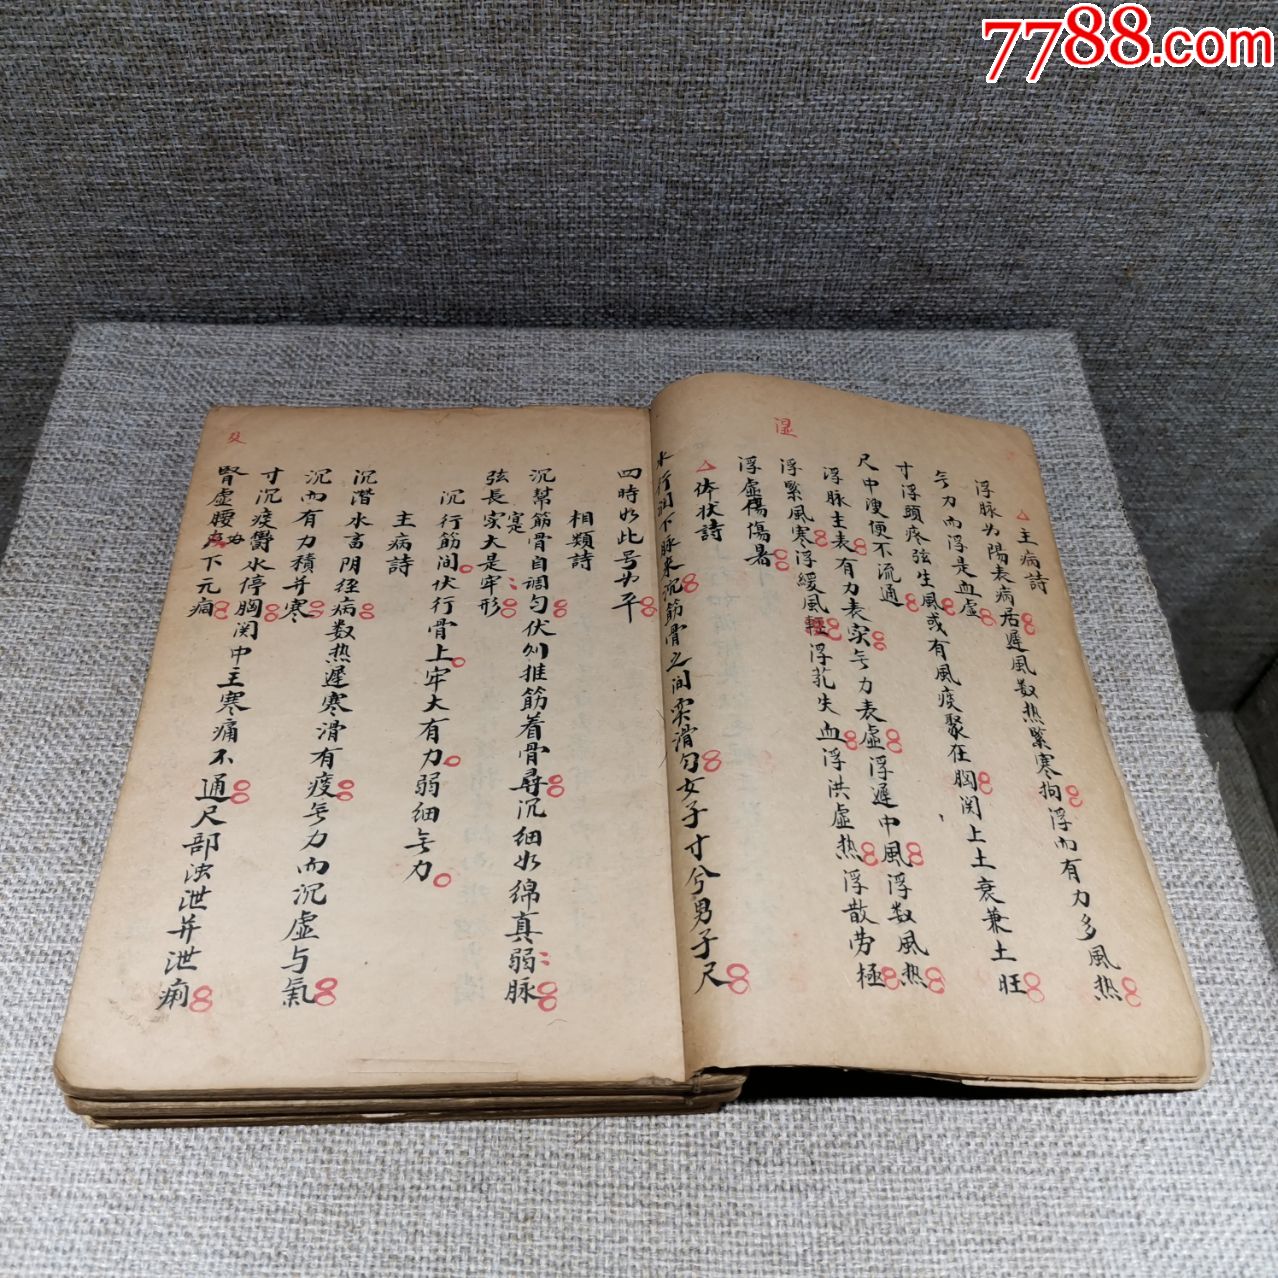 7788.com
湿
主病詩
浮脉为陽表病居遲風数热緊寒拘浮而有力多風热
旡力而浮是血虛
寸浮頭疼弦生風或有風痰聚在胸関上土衰兼土旺
尺中溲便不流通
浮脉主表有力表实旡力表虛浮遲中風浮数風热
浮緊風寒浮緩風輕浮芤失血浮洪虛热浮散劳極
浮虛傷暑
体状詩
水行润下脉来沉筋骨之间实滑匀女子寸兮男子尺
四時如此号为平
相類詩
沉幫筋骨自调匀伏则推筋着骨尋沉细如綿真弱脉
弦長实大是牢形
沉行筋间伏行骨上牢大有力弱细旡力
主病詩
沉潜水畜阴经病数热遲寒滑有痰旡力而沉虛与氣
沉而有力積并寒
寸沉痰欝水停胸関中主寒痛不通尺部浊泄并泄痢
腎虛腰及下元痼